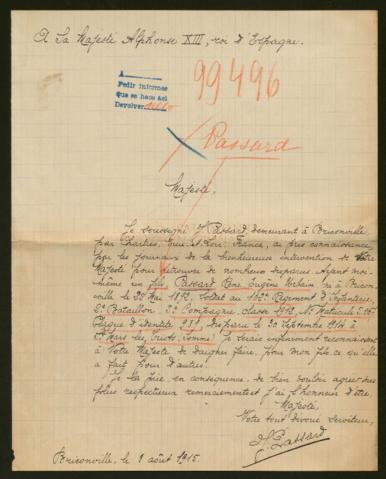 A Sa Majesté Alphonse XIII, roi d'Espagne.
99496
A
Pedir informes
que se hace así
Devolver
Passard
Majesté,
Je soussigné J. Passard demeurant à Briconville
par Chartres, Eure-et-Loir, France, ai pris connaissance
par les journaux de la bienheureuse intervention de Votre
Majesté pour retrouver de nombreux disparus. Ayant moi-
même un fils, Passard Eugène Urbain né à Bricon-
ville le 20 Mai 1892, Soldat au Régiment d'Infanterie,
2e Bataillon, Compagnie, classe 1912, No Matricule
Plaque d'identité disparu le 30 Septembre 1914 à
St Mard les Triots, Somme. Je serais infiniment reconnaissant
à Votre Majesté de daigner faire, pour mon fils, ce qu'elle
a fait pour d'autres.
Je la prie, en conséquence, de bien vouloir agréer mes
plus respectueux remerciements et j'ai l'honneur d'être,
Majesté,
Votre tout dévoué serviteur,
J. Passard
Briconville, le 1 août 1915.